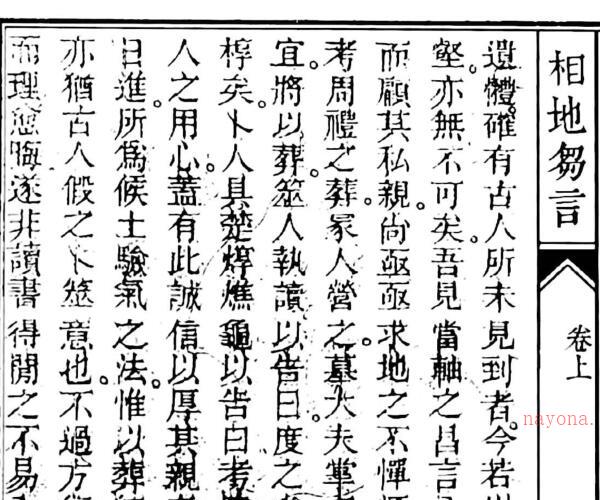 相地芻言
卷上
遺體確有古人所未見到者今若
壑亦無不可矣吾見當軸之昌言
而顧其私親尚亟亟求地之不憚
考周禮之葬冢人營之墓大夫掌
宜將以葬筮人執讀以告曰度之
椁矣卜人具楚焞燋龜以告曰考
人之用心蓋有此誠信以厚其親
日進所為候土驗氣之法惟以葬
亦猶古人假之卜筮意也不過方
而理愈晦遂非讀書得閒之不易
nayona.